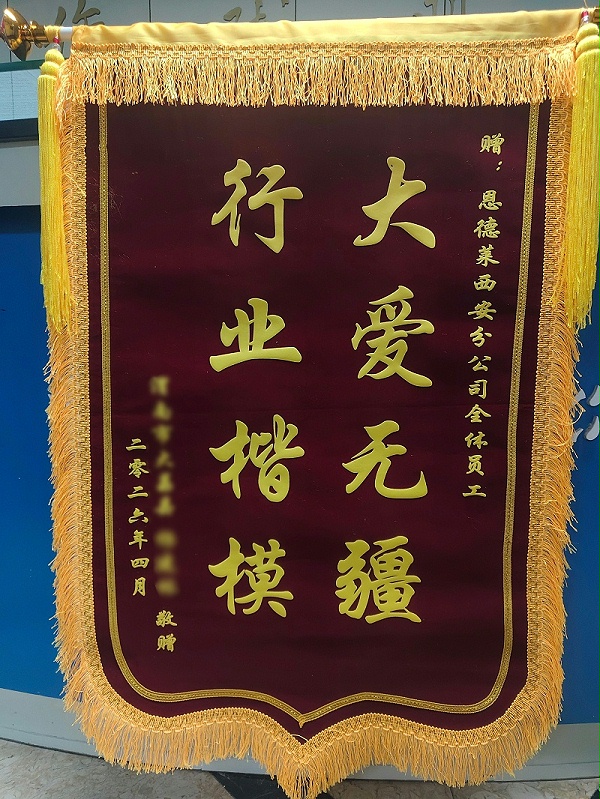 赠：恩德莱西安分公司全体员工
大爱无疆
行业楷模
敬赠
二零二六年四月